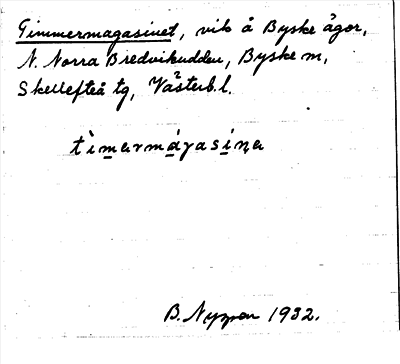 Timmermagasinet, vik å Byske ägor,
N. Norra Bredvikudden, Byske m,
Skellefteå tg, Västerb. l.
tìmarmáγasína
B. Nyman 1932.